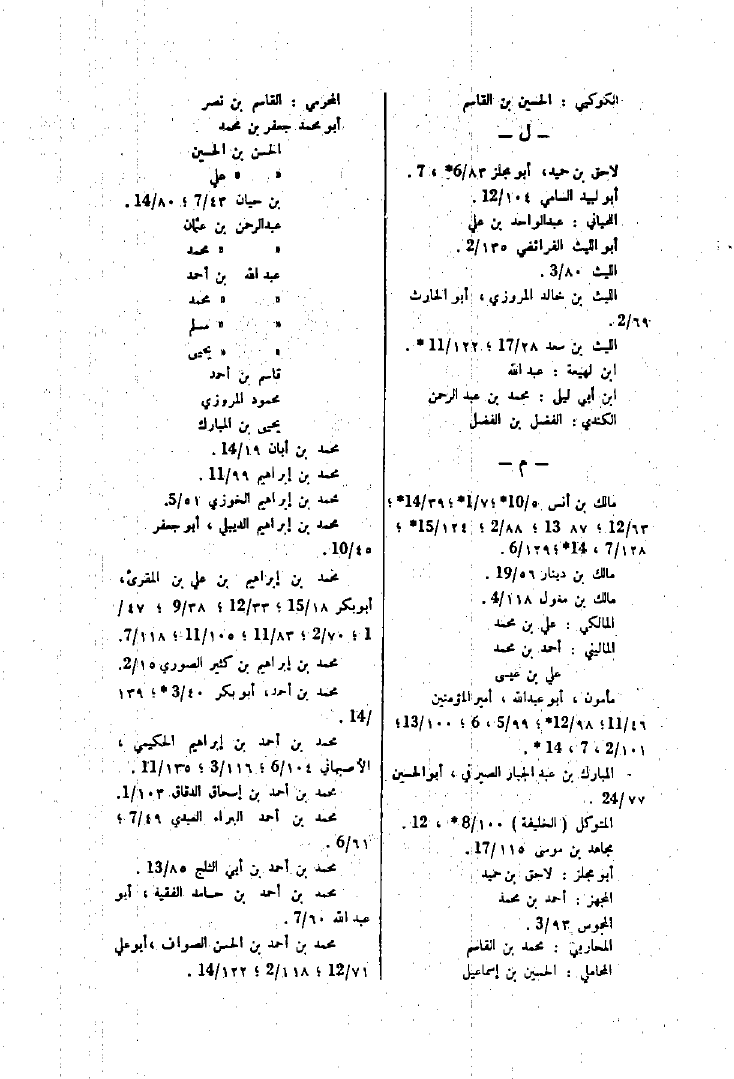 الكوكبي : الحسين بن القاسم
- ل -
لاحق بن حميد، أبو مجلز ٨٣/6* ، 7 .
أبو لبيد السامي ١٠٤/12 .
اللحياني : عبدالواحد بن علي
أبو الليث الفرائضي ١٣٥/2 .
الليث ٨٠/3 .
الليث بن خالد المروزي ، أبو الحارث
٦٩/2 .
الليث بن سعد ٢٨/17 ؛ ١٢٢/11 * .
ابن لهيعة : عبد الله
ابن أبي ليل : محمد بن عبد الرحمن
الكندي : الفضل بن الفضل
- م -
مالك بن أنس ٥/10* ؛ ٧/1* ؛ ٣٩/14* ؛
٦٣/12 ؛ ٨٧ 13 ؛ ٨٨/2 ؛ ١٢٤/15* ؛
١٢٨/7 ، 14* ؛ ١٢٩/6 .
مالك بن دينار ٥٦/19 .
مالك بن مغول ١١٨/4 .
المالكي : علي بن محمد
الماليني : أحمد بن محمد
علي بن عيسى
مأمون ، أبو عبدالله ، أمير المؤمنين
٤٦/11 ؛ ٩٨/12* ؛ ٩٩/5 ، 6 ؛ ١٠٠/13 ؛
١٠١/2 ، 7 ، 14 * .
المبارك بن عبد الجبار الصيرفي ، أبو الحسين
٧٧/24 .
المتوكل ( الخليفة ) ١٠٠/8 * ، 12 .
مجاهد بن موسى ١١٥/17 .
أبو مجلز : لاحق بن حميد
المجهز : أحمد بن محمد
المجوس ٩٣/3 .
المحاربي : محمد بن القاسم
المحاملي : الحسين بن إسماعيل
المخرمي : القاسم بن نصر
أبو محمد جعفر بن محمد
الحسن بن الحسين
« « علي
بن حيان ٤٣/7 ؛ ٨٠/14 .
عبدالرحمن بن عثمان
« « محمد
عبد الله بن أحمد
« « محمد
« « مسلم
« « يحيى
قاسم بن أحمد
محمود المروزي
يحيى بن المبارك
محمد بن أبان ١٩/14 .
محمد بن إبراهيم ٩٩/11 .
محمد بن إبراهيم الخوزي ٥١/5.
محمد بن إبراهيم الديبلي ، أبو جعفر
٤٥/10 .
محمد بن إبراهيم بن علي بن المقرئ،
أبوبكر ١٨/15 ؛ ٣٣/12 ؛ ٣٨/9 ؛ ٤٧/
1 ؛ ٧٠/2 ؛ ٨٣/11 ؛ ١٠٥/11 ؛ ١١٨/7.
محمد بن إبراهيم بن كثير الصوري ١٥/2.
محمد بن أحمد، أبو بكر ٤٠/3 * ؛ ١٣٩
/14 .
محمد بن أحمد بن إبراهيم الحكيمي ،
الأصبهاني ١٠٤/6 ؛ ١١٦/3 ؛ ١٣٥/11 .
محمد بن أحمد بن إسحاق الدقاق ١٠٣/1.
محمد بن أحمد البراء العبدي ٤٩/7 ؛
٦١/6 .
محمد بن أحمد بن أبي الثلج ٨٥/13 .
محمد بن أحمد بن حامد الفقيه ، أبو
عبد الله ٦٠/7 .
محمد بن أحمد بن الحسن الصواف ،أبو علي
٧١/12 ؛ ١١٨/2 ؛ ١٢٢/14 .